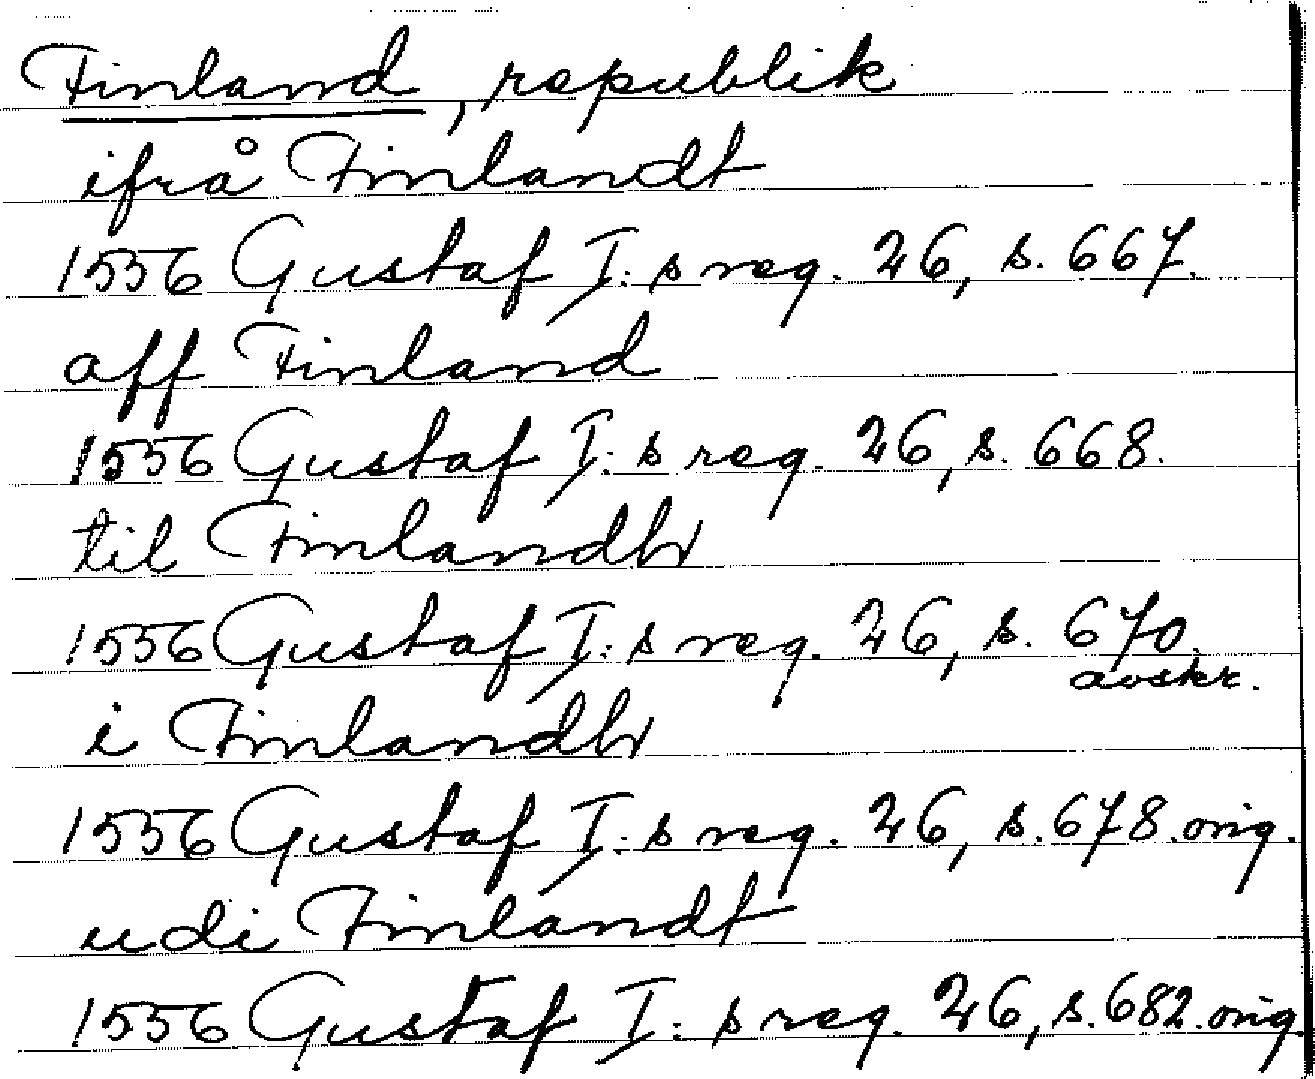 Finland, republik
ifrå Finlandt
1556 Gustaf I:s reg. 26, s. 667.
aff Finland
1556 Gustaf I:s reg. 26, s. 668.
til Finlandh
1556 Gustaf I:s reg. 26, s. 670.
avskr.
i Finlandh
1556 Gustaf I:s reg. 26, s. 678. orig.
udi Finlandt
1556 Gustaf I:s reg. 26, s. 682. orig.